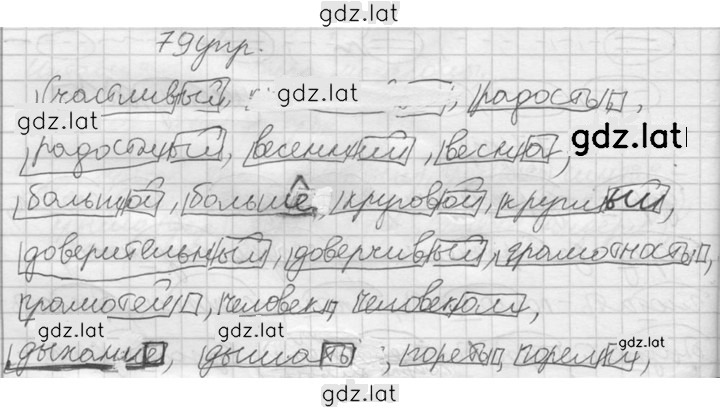 gdz.lat
79 упр.
счастливый, gdz.lat, радость,
gdz.lat
радостный, весенний, весна, gdz.lat
большой, больше, круговой, круглый,
доверительный, доверчивый, грамотность,
грамотей, человек, человеком,
gdz.lat gdz.lat
дыхание, дышать, гореть,
gdz.lat